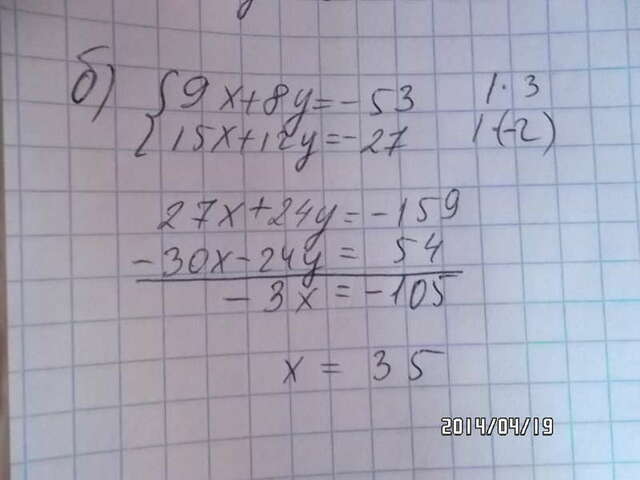 б) { 9x+8y=-53 |· 3
15x+12y=-27 |·(-2)
27x+24y=-159
-30x-24y= 54
-3x=-105
x = 35
2014/04/19